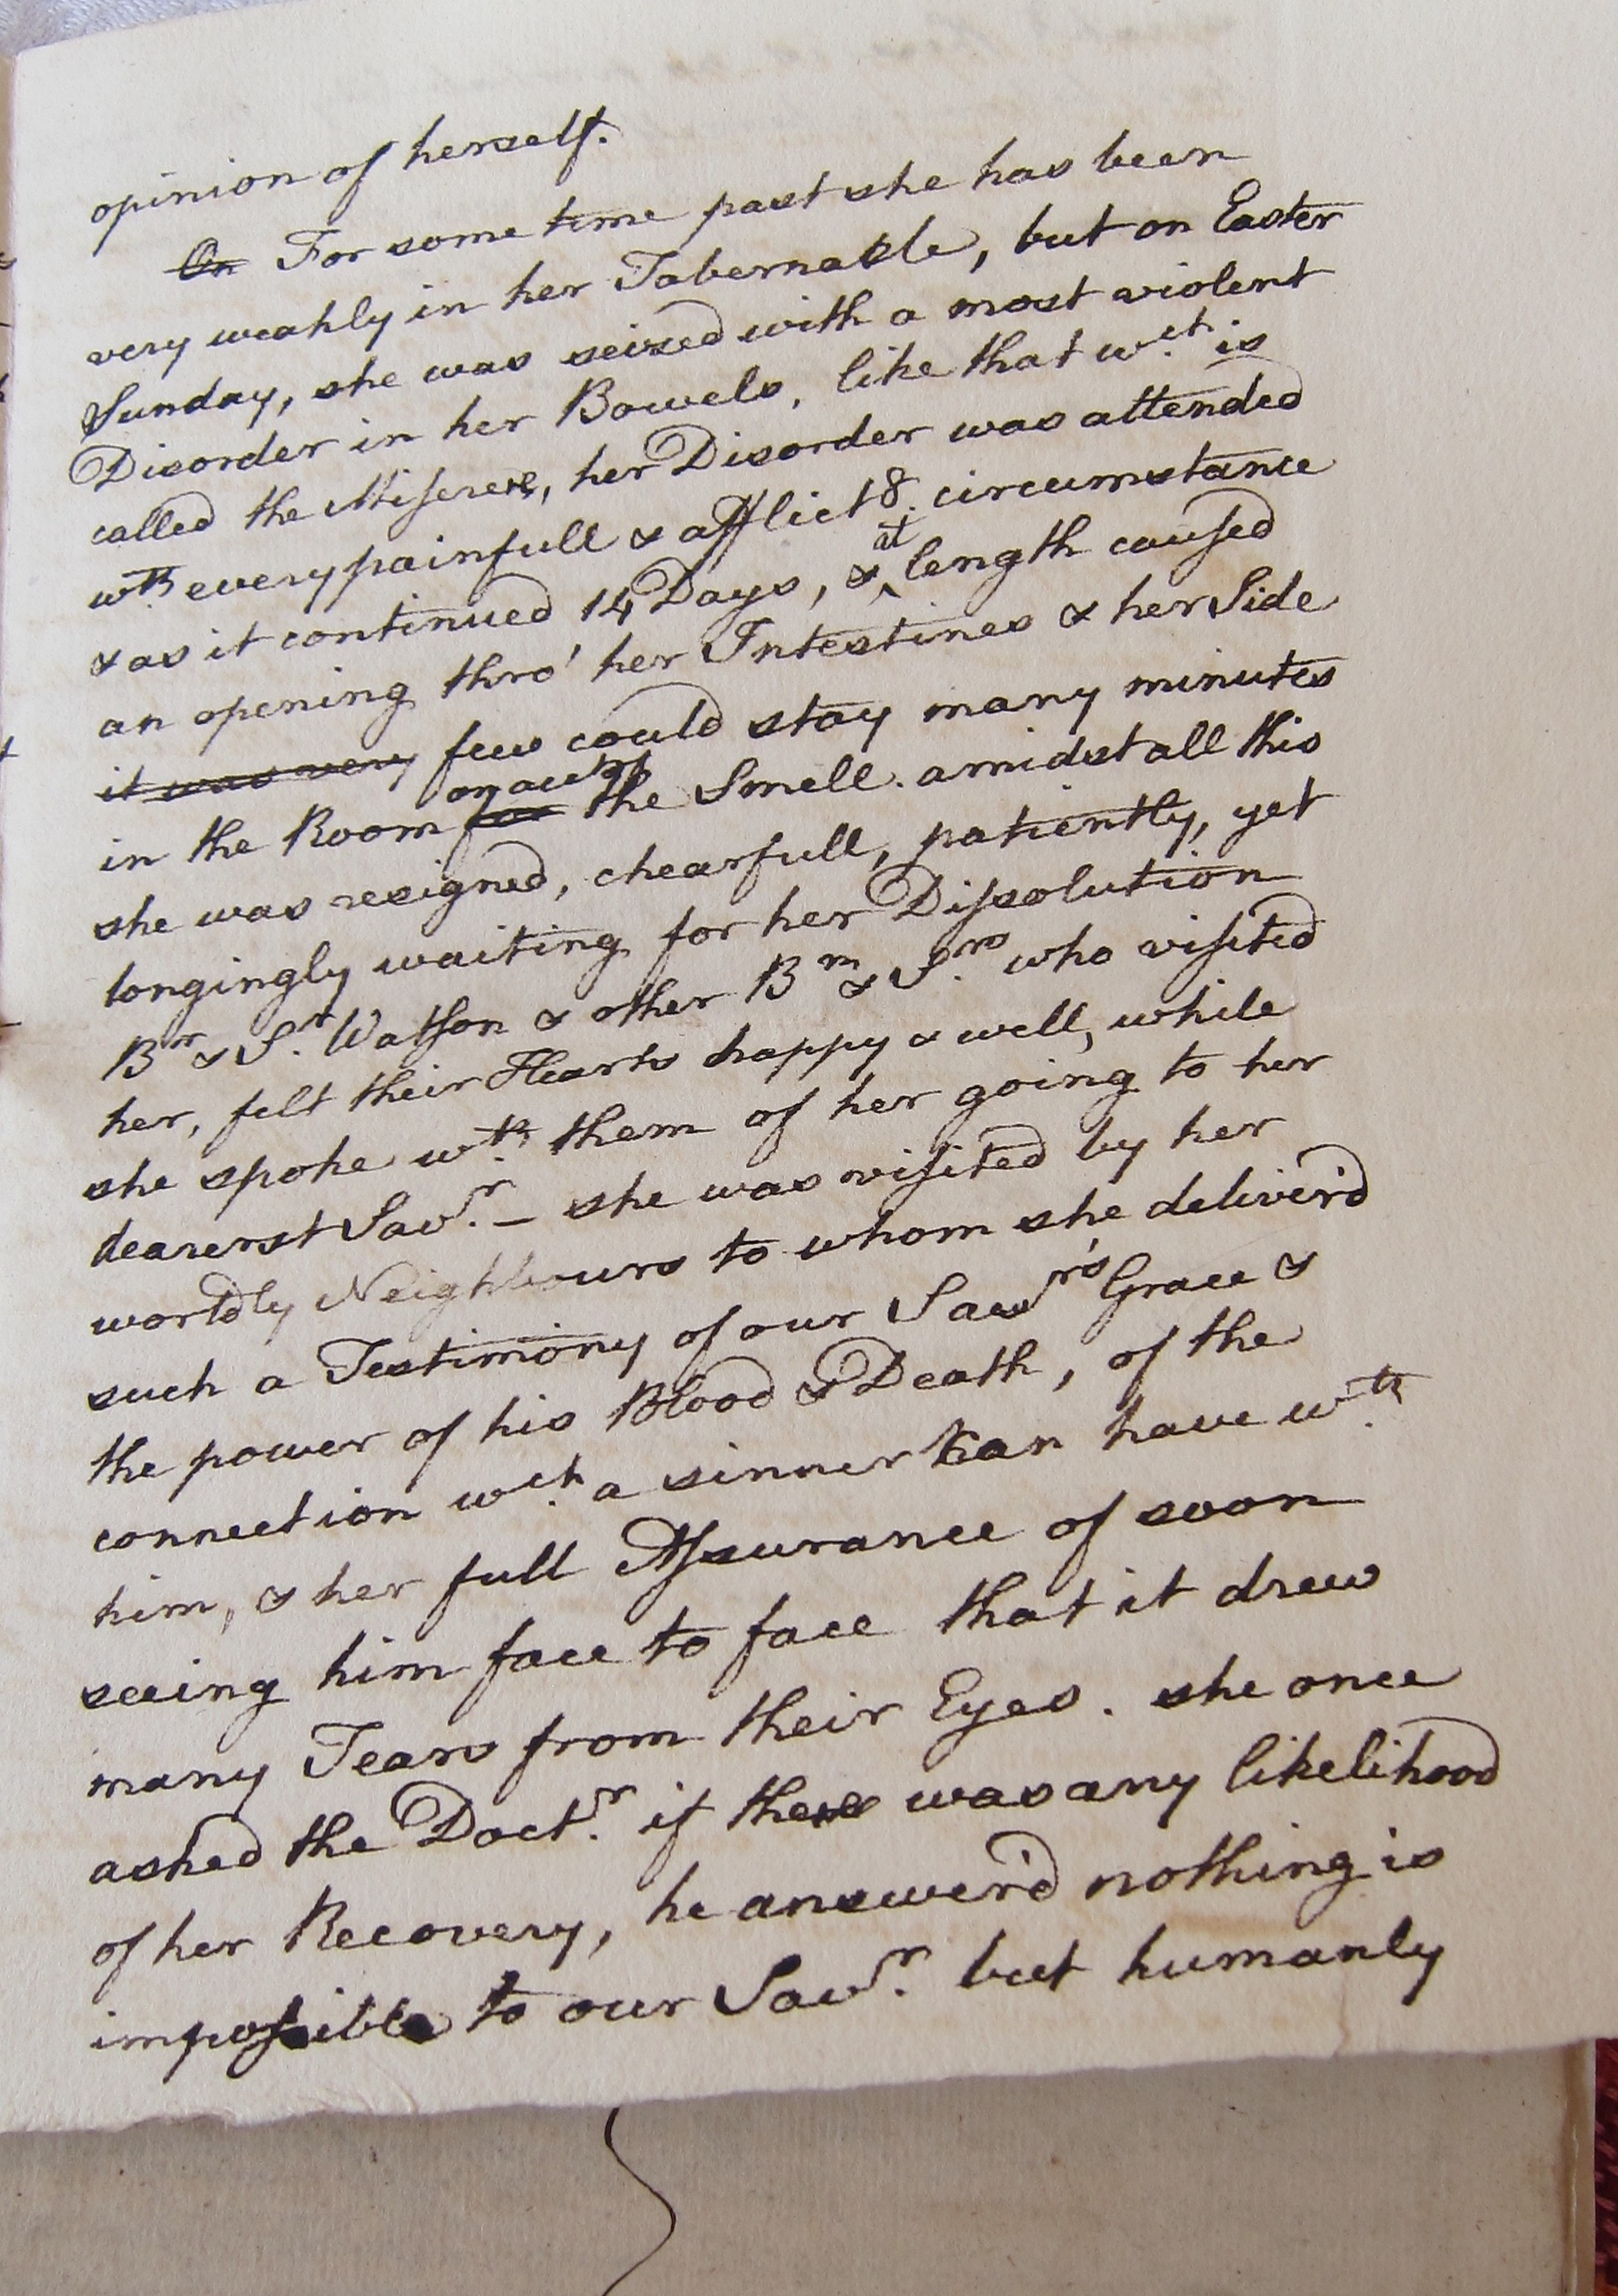 opinion of herself.
On For some time past she has been
very weakly in her Tabernakle, but on Easter
Sunday, she was seized with a most violent
Disorder in her Bowels, like that wch. is
called the Miserere, her Disorder was attended
wth. every painfull & afflict8. circumstance
& as it continued 14 Days, & at length caused
an opening thro' her Intestines & her Side
it was very few could stay many minutes
in the Room for on acct. of the Smell. amidst all this
she was resigned, chearfull, patiently, yet
longingly waiting for her Dissolution
Br. & Sr. Watson & other Brn & Srs. who visited
her, felt their Hearts happy & well, while
she spoke wth. them of her going to her
dearerst Savr. – she was visited by her
worldly Neighbours to whom she deliver'd
such a Testimony of our Savr's Grace &
the power of his Blood & Death, of the
connection wch. a sinner can have wth.
him, & her full Assurance of soon
seeing him face to face that it drew
many Tears from their Eyes. she once
asked the Doctr. if there was any likelihood
of her Recovery, he answer'd nothing is
impossible to our Savr. but humanly